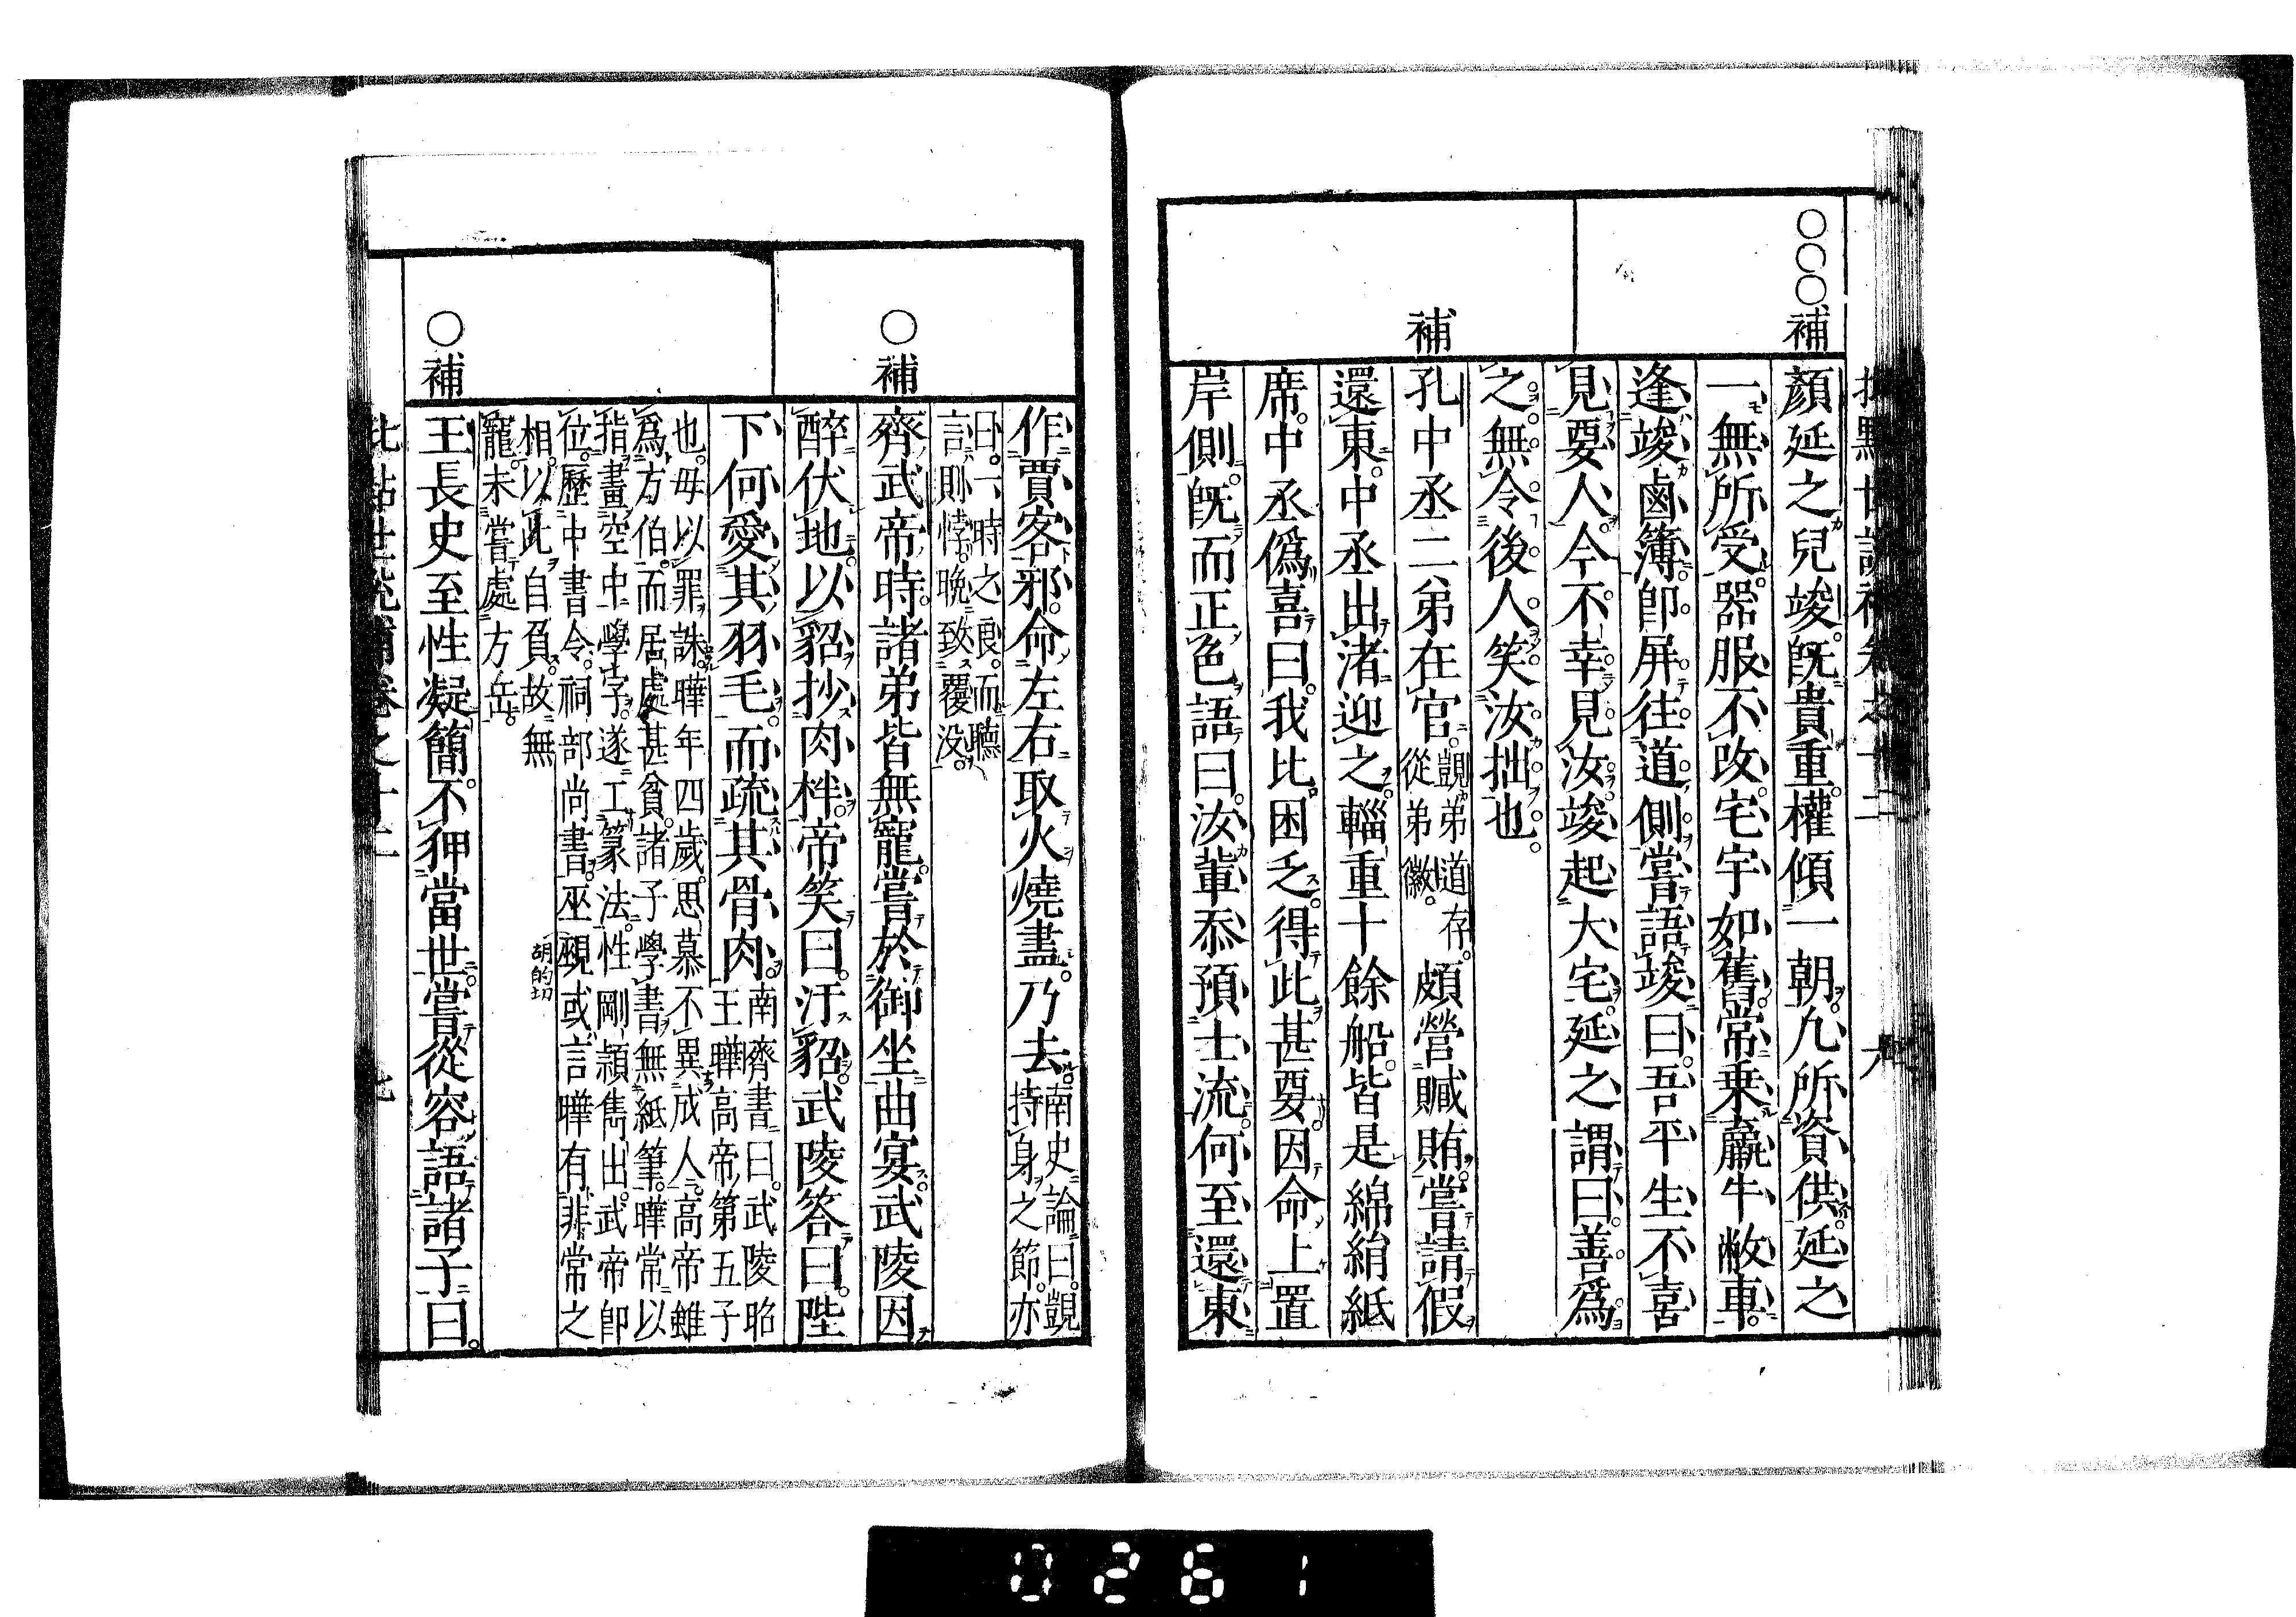 ○○○補
顏延之兒竣。既貴重。權傾一朝。凢所資供。延之
一無所受。器服不改。宅宇如舊。常乗羸牛敝車。
逢竣鹵簿。卽屏往道側。嘗語竣曰。吾平生不喜
見要人。今不幸見汝。竣起大宅。延之謂曰。善爲
之。無令後人笑汝拙也。
補
孔中丞二弟在官。
覬弟道存。
從弟徽。
頗營贓賄。嘗請假
還東。中丞出渚迎之。輜重十餘船。皆是綿絹紙
席。中丞僞喜曰。我比困乏。得此甚要。因命上置
岸側。旣而正色語曰。汝輩忝預士流。何至還東
作賈客邪。命左右取火燒盡。乃去。
南史論曰。覬
持身之節。亦
曰。一時之良。而聽
言則悖。晚致覆没。
○補
齊武帝時。諸弟皆無寵。嘗於御坐曲宴。武陵因
醉伏地。以貂抄肉柈。帝笑曰。汙貂。武陵答曰。陛
下何愛其羽毛。而疏其骨肉。
南齊書曰。武陵昭
王曄。高帝第五子
也。毋以罪誅。曄年四歲。思慕不異成人。高帝雖
爲方伯。而居處甚貧。諸子學書無紙筆。曄常以
指畫空中學字。遂工篆法。性剛頴雋出。武帝卽
位。歷中書令。祠部尚書。巫覡或言曄有非常之
胡的切
相。以此自負。故無
寵。未嘗處方岳。
○補
王長史至性凝簡。不狎當世。嘗從容語諸子曰。
批點世說補卷之十二
七